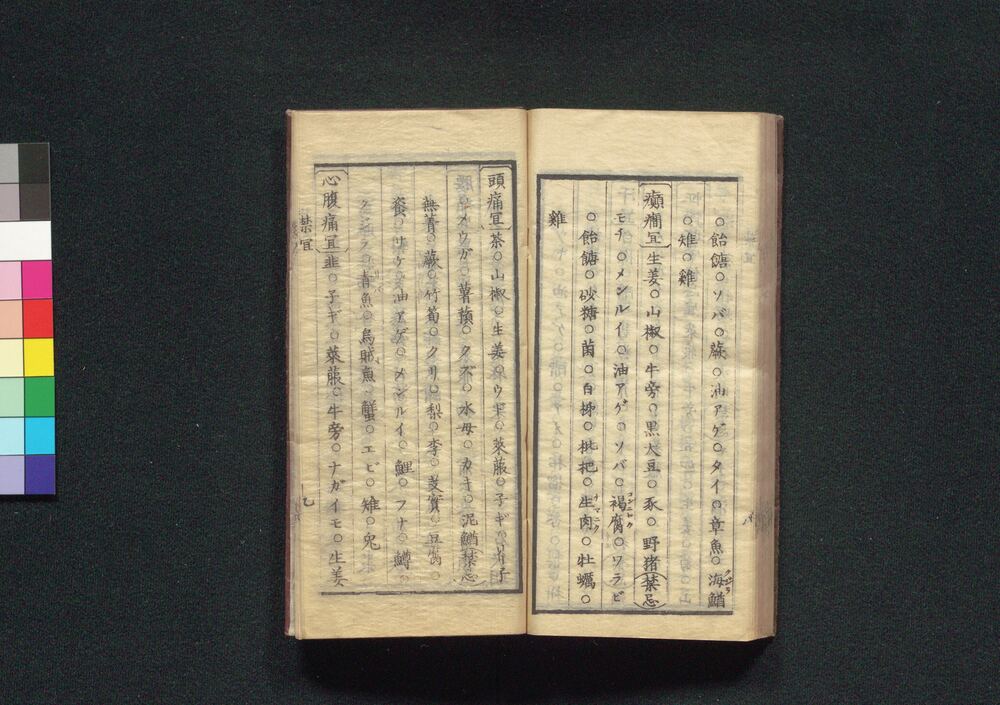 ○飴餹○ソバ○蕨○油アゲ○タイ○章魚○海鰌クジラ
○雉○雞
癲癇宜 生姜○山椒○牛旁○黒大豆○豕○野猪 禁忌
モチ○メンルイ○油アゲ○ソバ○褐腐コンニャク○ワラビ
○飴餹○砂糖○菌○白𣏌○枇杷○生肉ナマニク○牡蠣○
雞
頭痛宜 茶○山椒○生姜○ウド○萊菔○子ギ○芥子
○メウガ○薯蕷○クズ○水母○カキ○泥鰌 禁忌
無菁○蕨○竹筍○クリ○梨○李○芰實○豆腐○
蚕○サケ○油アゲ○メンルイ○鯉○フナ○鱒○
クジラ○青魚○烏賊魚○蟹○エビ○雉○兎
心腹痛宜 韭○子ギ○萊菔○牛旁○ナガイモ○生姜
禁宜
七